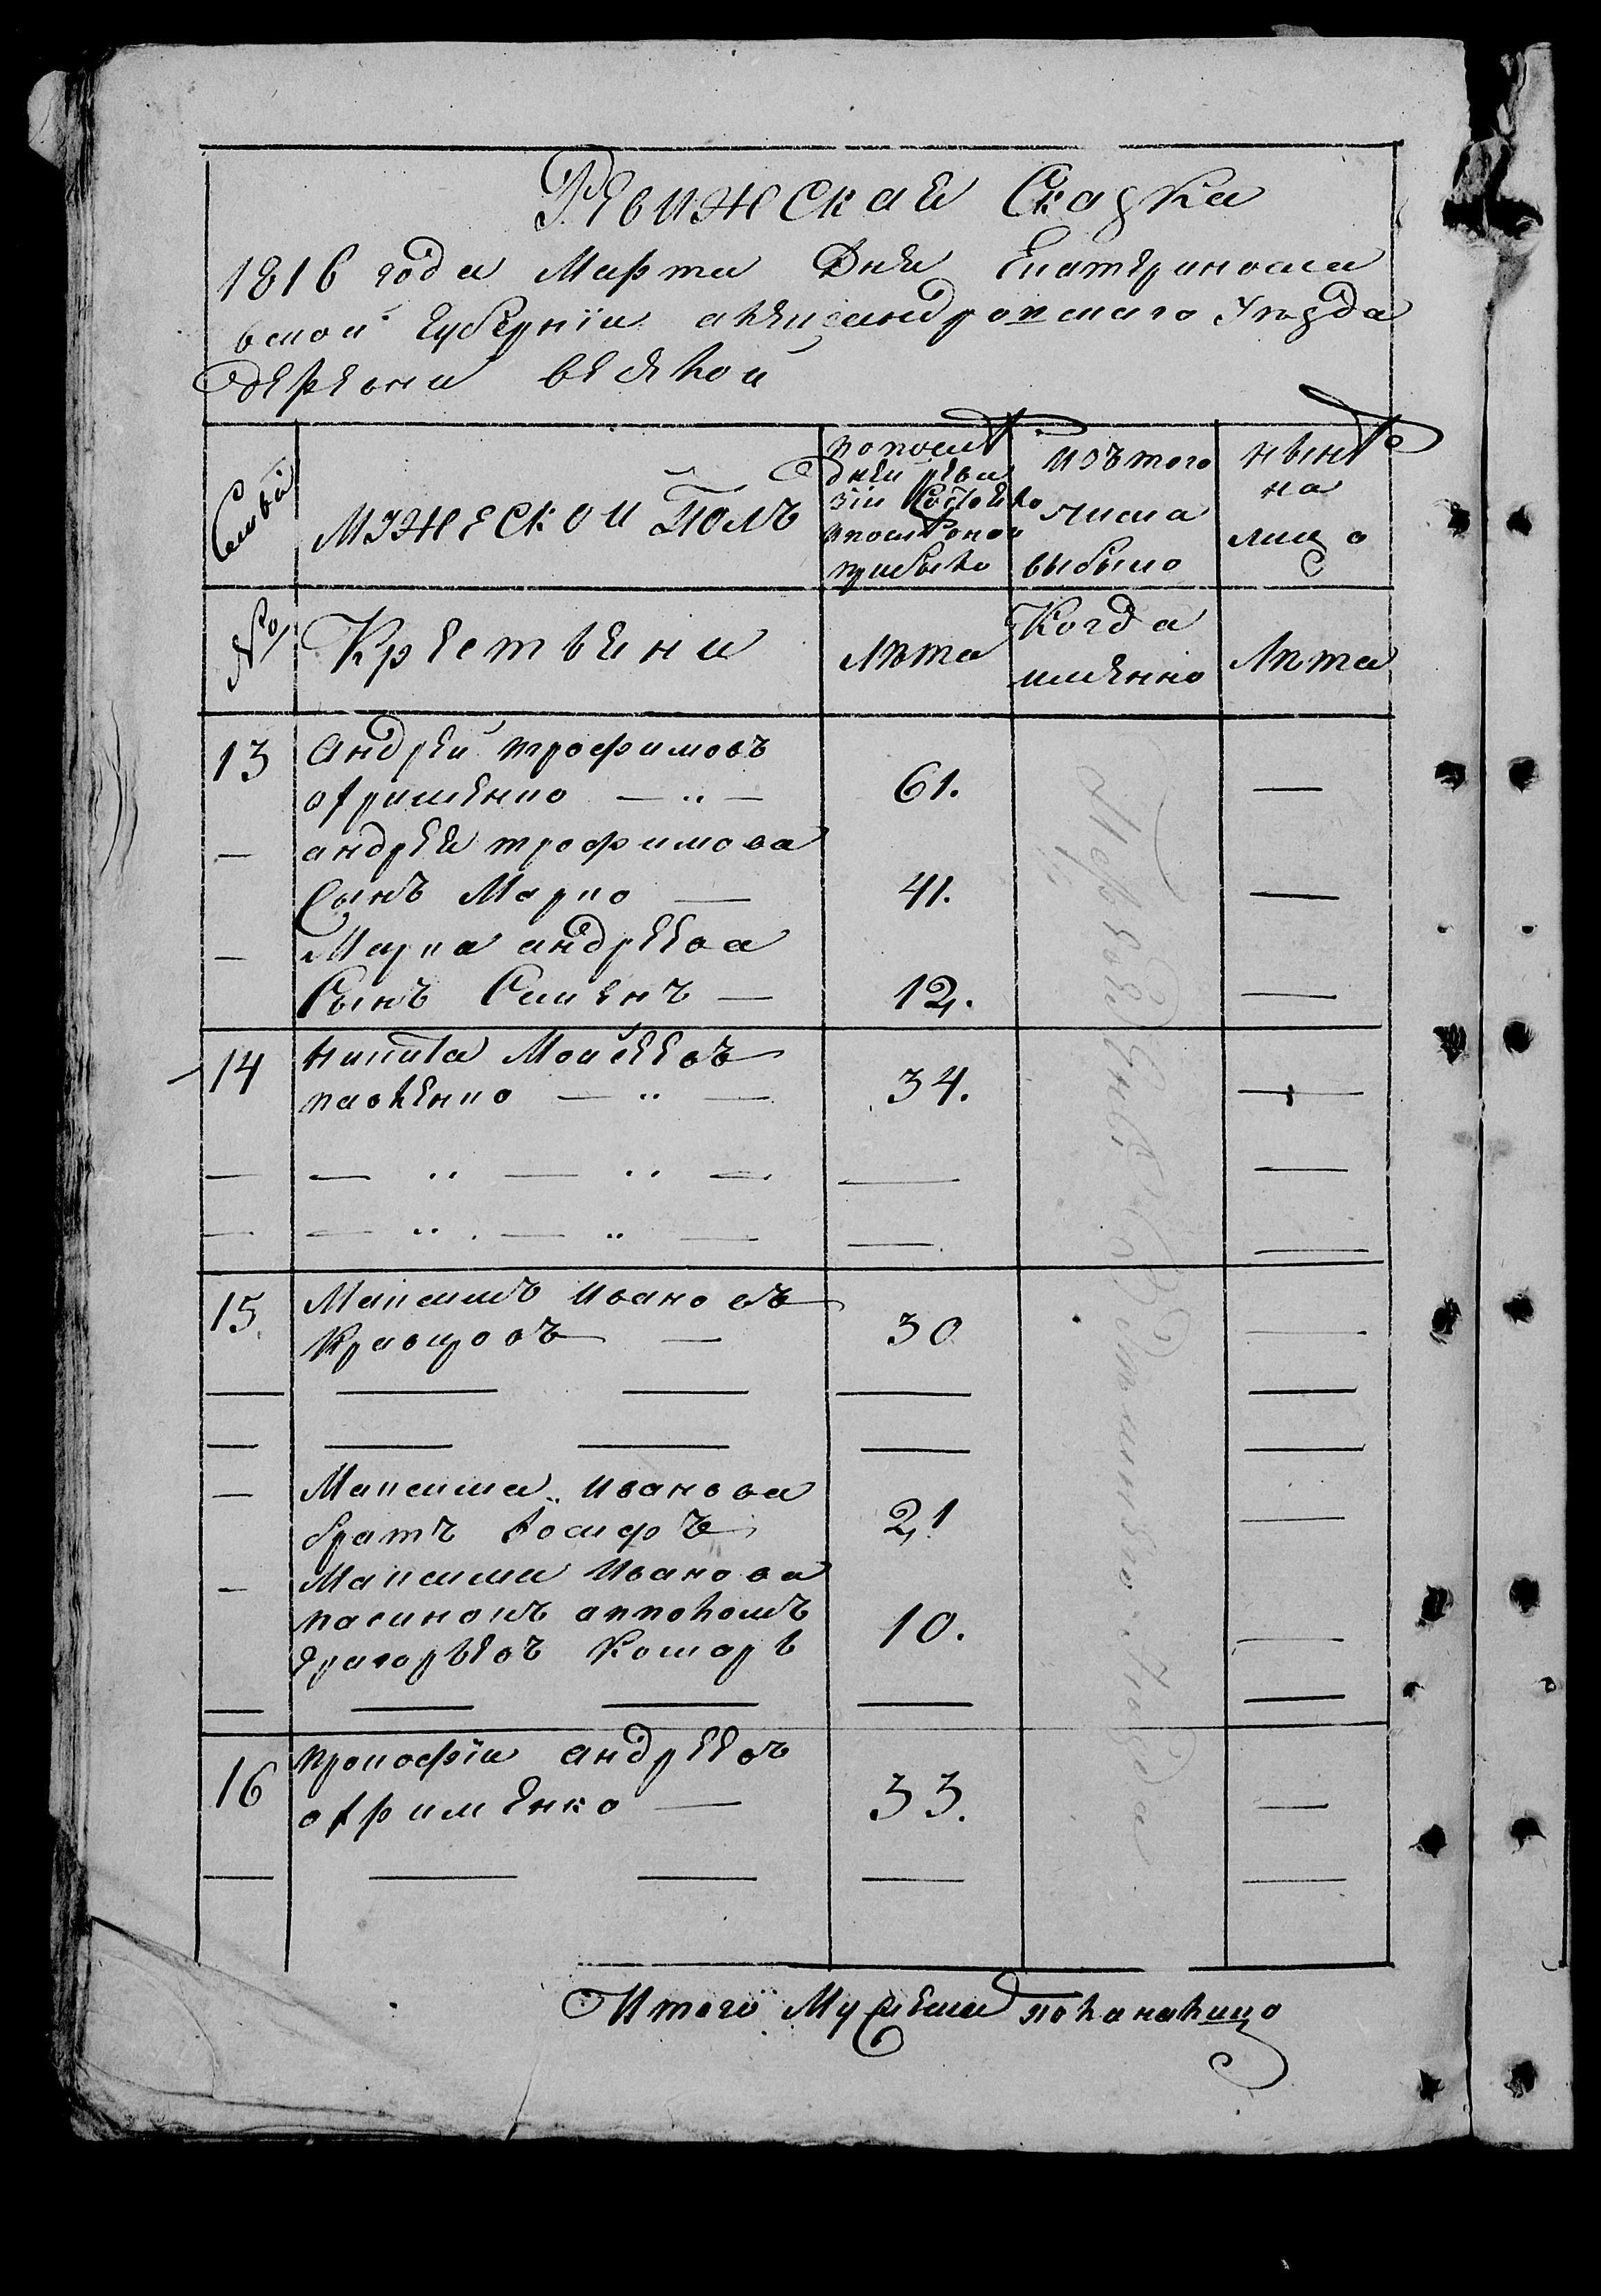 Ревижская Сказка
1816 года Марта Дня Екатериносла
вской губерниi александровскаго Уѣзда
деревни веселой
Семьи
мужеской полъ
по послѣ
дней реви
зiи состояло
и послѣ оной
прибыло
изъ того
числа
выбыло
нынѣ
на
лицо
№
Крестьяни
лѣта
Когда
именно
Лѣта
13 андрей трофимовъ
ефрименко — " — 61. —
— андрея трофимова
сынъ Марко — 41. —
— Марка андреева
сынъ Семенъ — 12. —
14 никита Моисеевъ
павленко — " — 34. —
15 Максимъ ивановъ
Кравцовъ — 30 —
— Максима иванова
братъ иосифъ 21 —
— Максима иванова
пасинокъ
григорьевъ 10. —
16 прокофiй андреевъ
ефрименко — 33. —
Итого Мужеска пола налицо